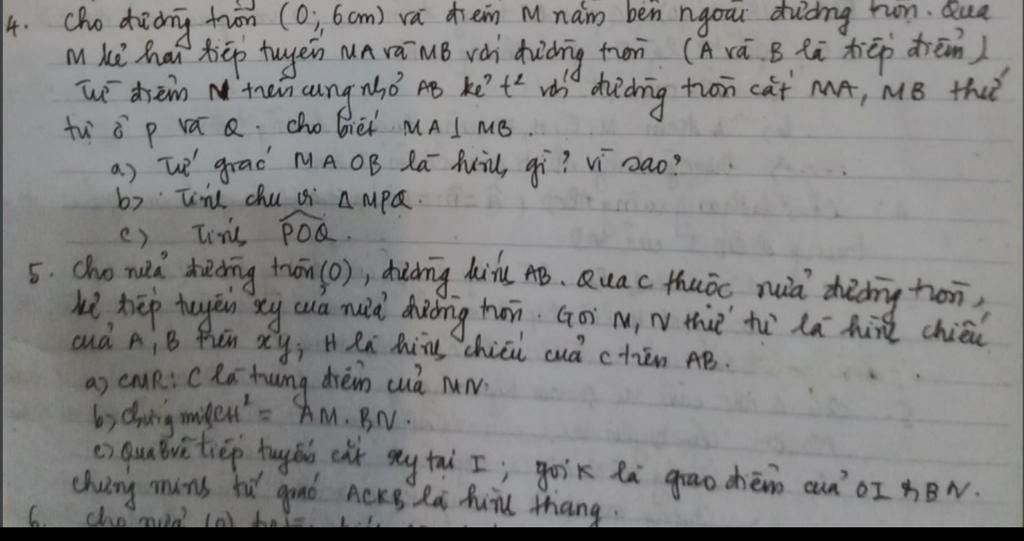 4. Cho đường tròn (O; 6cm) và điểm M nằm bên ngoài đường tròn. Qua
M kẻ hai tiếp tuyến MA và MB với đường tròn (A và B là tiếp điểm)
Từ điểm N trên cung nhỏ AB kẻ t² với đường tròn cắt MA, MB thứ
tự ở P và Q. cho biết MA ⊥ MB.
a) Tứ giác MAOB là hình gì? vì sao?
b> Tính chu vi Δ MPQ.
c) Tính POQ.
5. Cho nửa đường tròn (O), đường kính AB. Qua C thuộc nửa đường tròn,
kẻ tiếp tuyến xy của nửa đường tròn. Gọi M, N thứ tự là hình chiếu
của A, B trên xy, H là hình chiếu của C trên AB.
a) CMR: C là trung điểm của MN.
b> Chứng m CH² = AM.BN.
c) Qua B vẽ tiếp tuyến cắt xy tại I; gọi K là giao điểm của OI & BN.
chứng minh tứ giác ACKB là hình thang.
6. cho nửa (O)